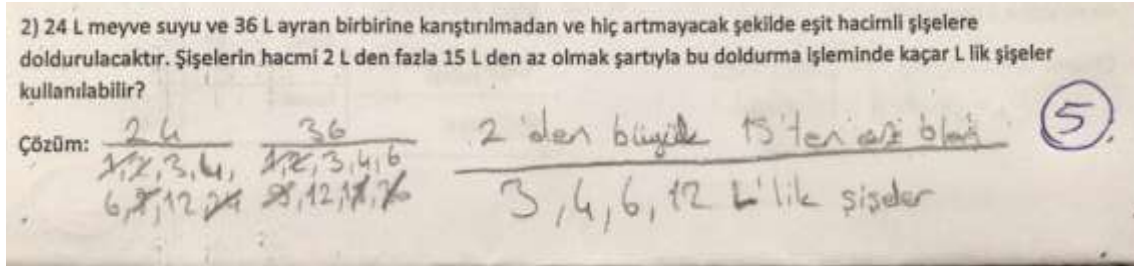 2) 24 L meyve suyu ve 36 L ayran birbirine karıştırılmadan ve hiç artmayacak şekilde eşit hacimli şişelere
doldurulacaktır. Şişelerin hacmi 2 L den fazla 15 L den az olmak şartıyla bu doldurma işleminde kaçar L lik şişeler
kullanılabilir?
Çözüm:
24
1,2,3,4,
6,8,12,24
36
1,2,3,4,6
9,12,18,36
2'den büyük 15'ten az olan
3,4,6,12 L'lik şişeler
5